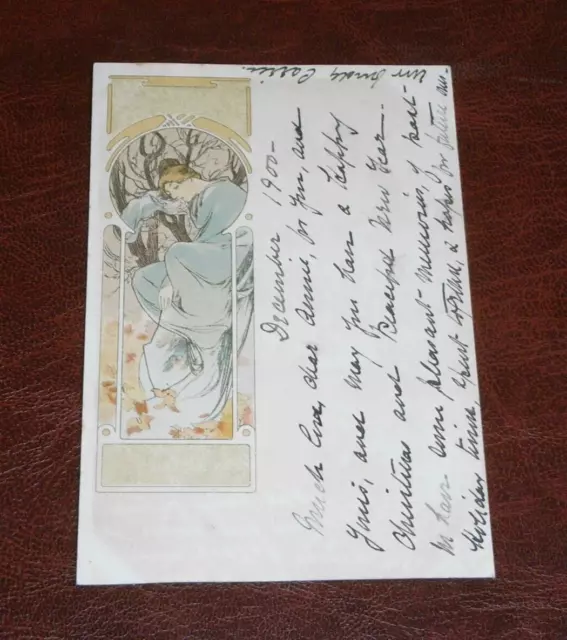 December 1900-
Much love, dear Annie, for you, and
yours, and may you have a Happy
Christmas and Peaceful New Year-
have pleasant memories, of past-
Holiday time, spent & hopes for future
Carrie.